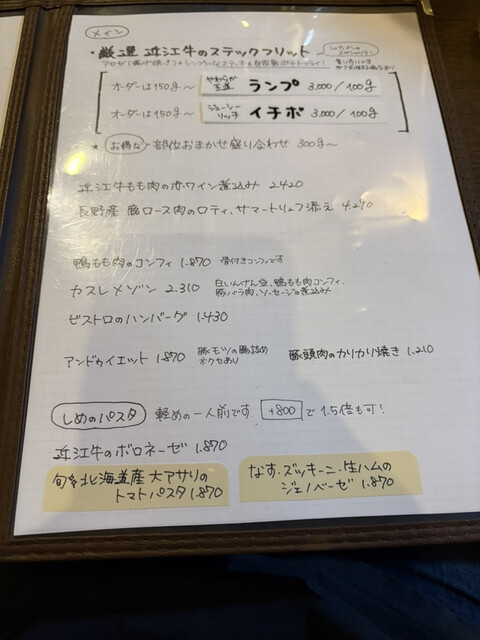 メイン
・厳選 近江牛のステックフリット
オーダーは150g〜 やわらか 王道 ランプ 3,000/100g
オーダーは150g〜 ジューシー リッチ イチボ 3,000/100g
★ お得な 部位おまかせ盛り合わせ 300g〜
近江牛もも肉の赤ワイン煮込み 2.420
長野産 鹿ロース肉のロティ、サマートリュフ添え 4.290
鴨もも肉のコンフィ 1.870 骨付きコンフィです
カスレメゾン 2.310 白いんげん豆、鴨もも肉コンフィ、
豚バラ肉、ソーセージの煮込み
ビストロのハンバーグ 1.430
アンドゥイエット 1.870 豚モツの腸詰め
※クセあり
豚頭肉のカリカリ焼き 1.210
しめのパスタ 軽めの一人前です +800 で1.5倍も可!
近江牛のボロネーゼ 1.870
旬を 北海道産 大アサリの
トマトパスタ 1.870
なす・ズッキーニ・生ハムの
ジェノベーゼ 1.870